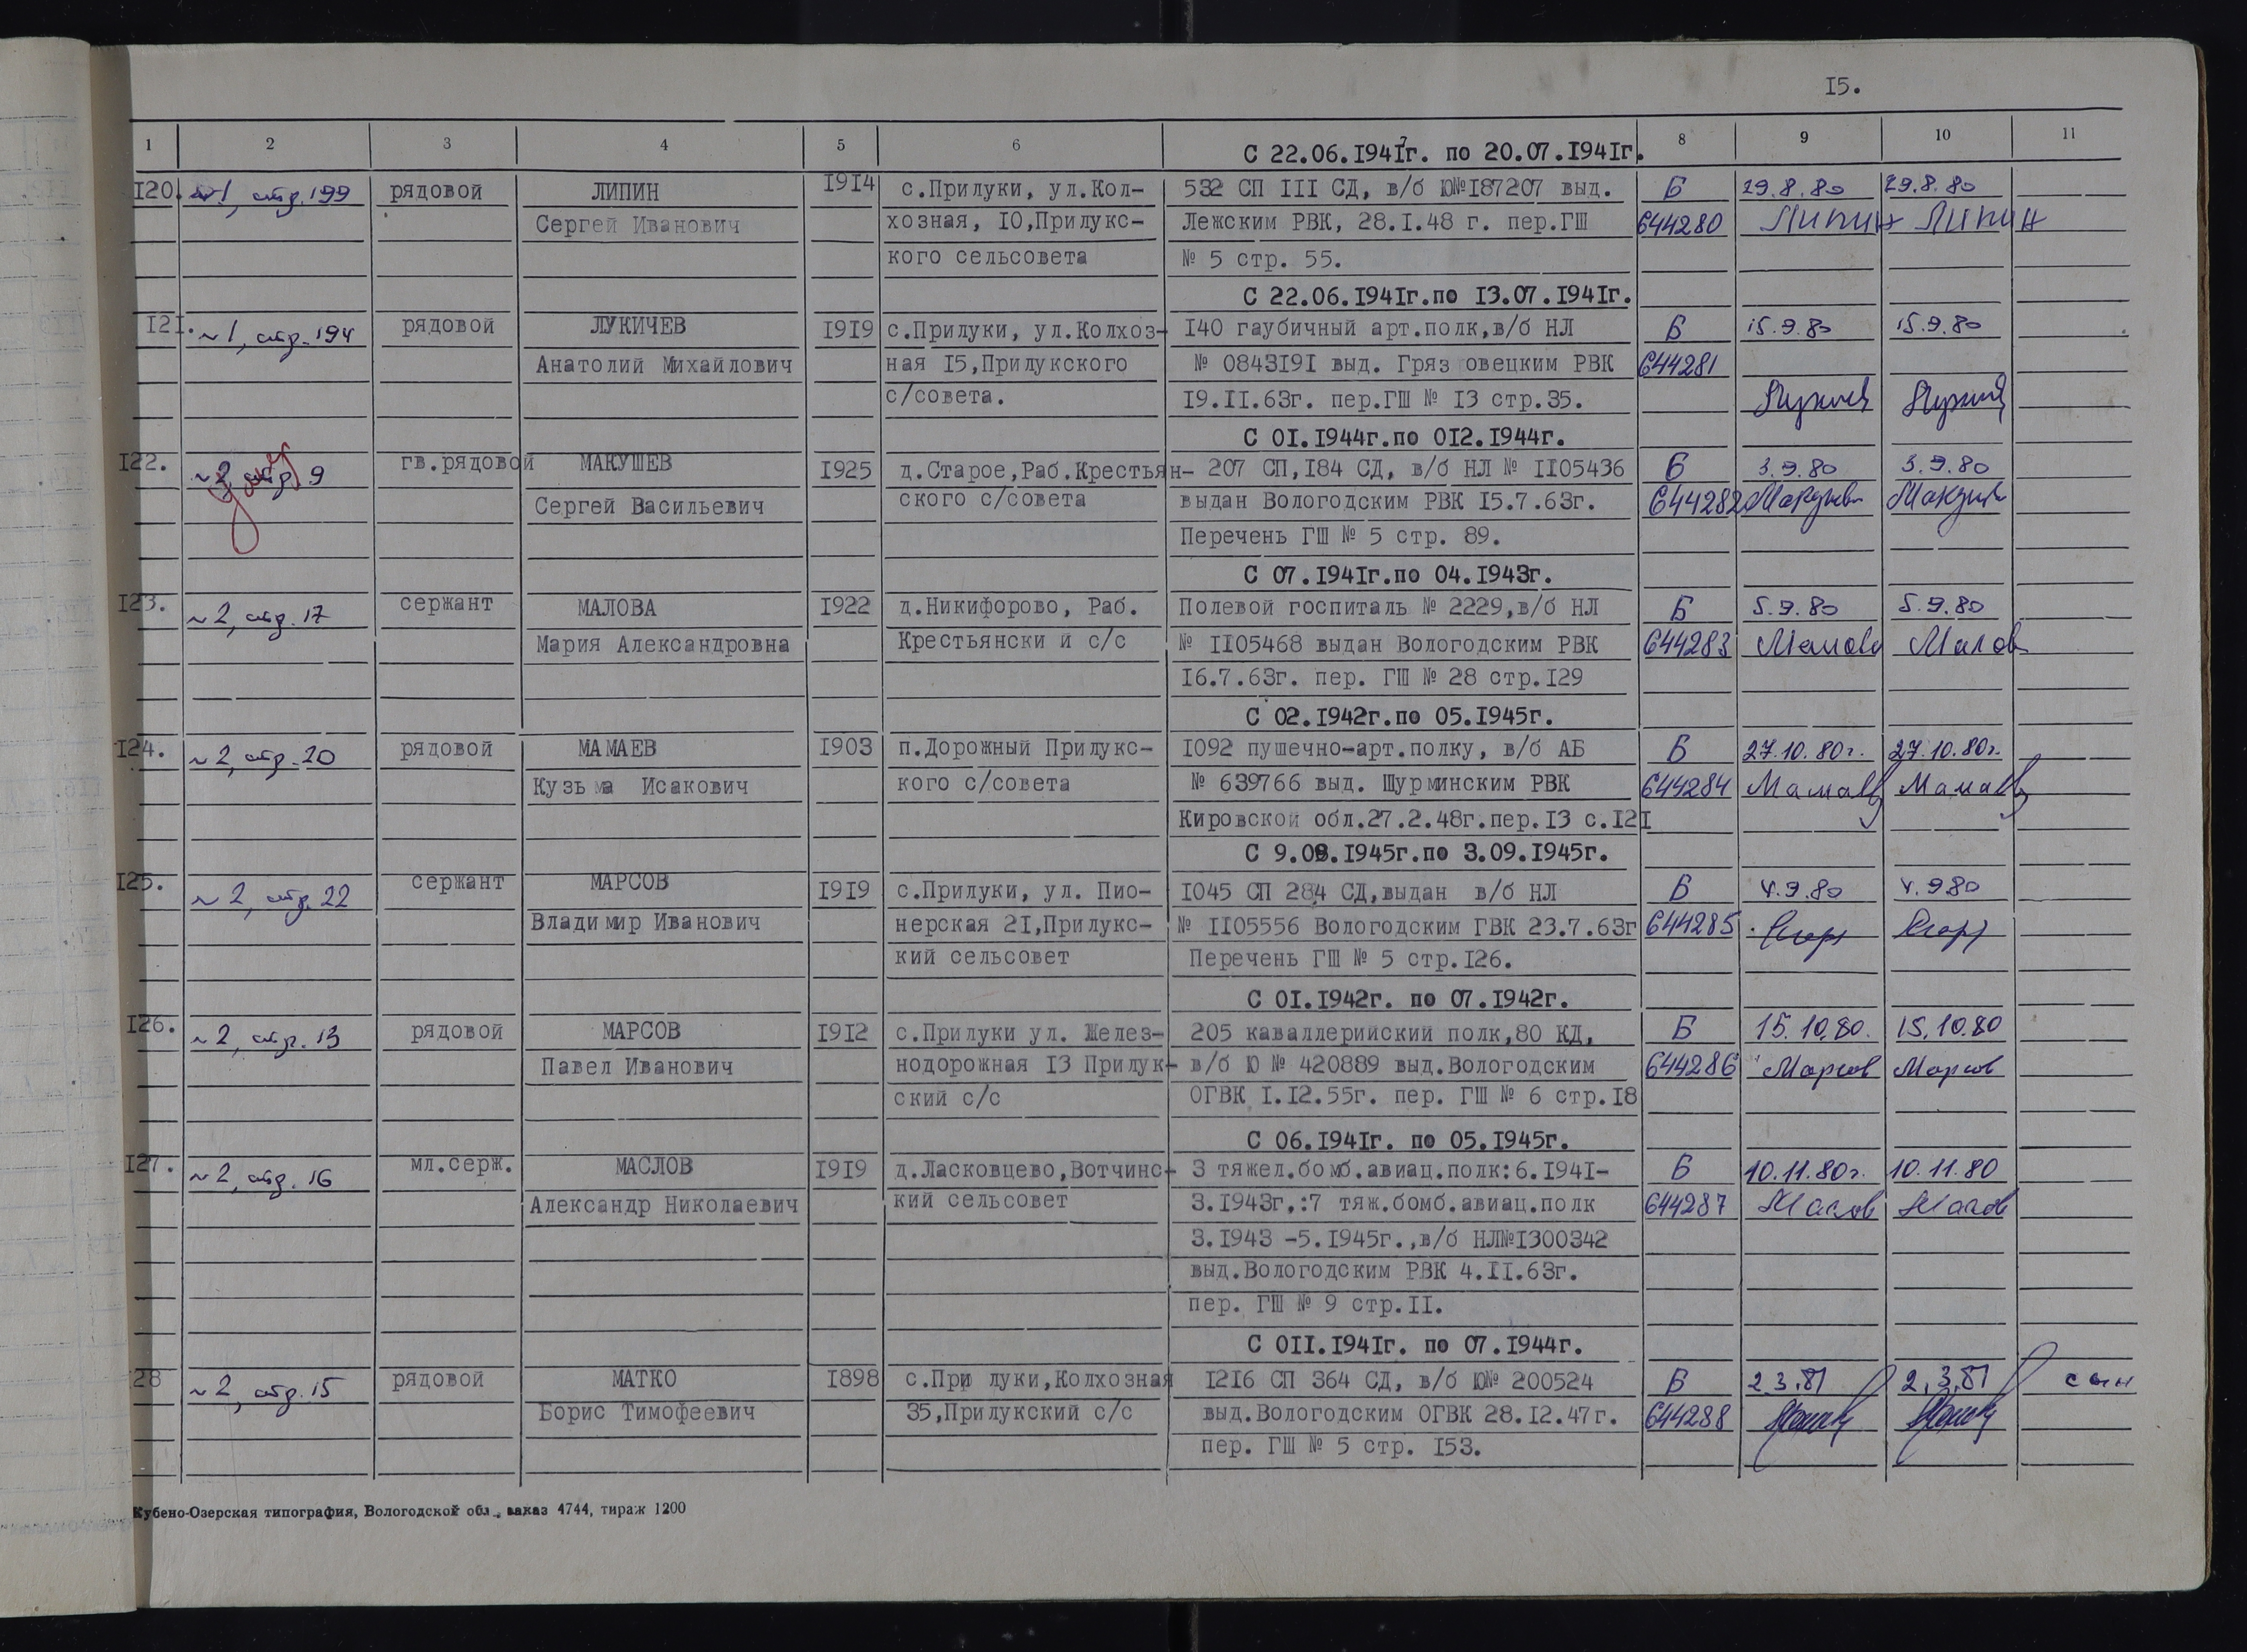 15.
1 2 3 4 5 6 8 9 10 11
С 22.06.1941г. по 20.07.1941г.
120. №1, стр. 199 рядовой ЛИПИН 1914 с.Прилуки, ул.Кол- 532 СП III СД, в/б Ю№187207 выд. Б 29.8.80 29.8.80
Сергей Иванович хозная, 10,Прилукс- Лежским РВК, 28.I.48 г. пер.ГШ 644280 Липин Липин
кого сельсовета № 5 стр. 55.
С 22.06.1941г.по 13.07.1941г.
121. ~1, стр. 194 рядовой ЛУКИЧЕВ 1919 с.Прилуки, ул.Колхоз- 140 гаубичный арт.полк,в/б НЛ Б 15.9.80 15.9.80
Анатолий Михайлович ная 15,Прилукского № 0843191 выд. Гряз овецким РВК 644281
с/совета. 19.II.63г. пер.ГШ № 13 стр.35.
С 01.1944г.по 012.1944г.
122. ~2 стр 9 гв.рядовой МАКУШЕВ 1925 д.Старое,Раб.Крестьян- 207 СП,184 СД, в/б НЛ № 1105436 Б 3.9.80 3.9.80
Сергей Васильевич ского с/совета выдан Вологодским РВК 15.7.63г. 644282
Перечень ГШ № 5 стр. 89.
С 07.1941г.по 04.1943г.
123. ~2, стр. 17 сержант МАЛОВА 1922 д.Никифорово, Раб. Полевой госпиталь № 2229,в/б НЛ Б 5.9.80 5.9.80
Мария Александровна Крестьянски й с/с № 1105468 выдан Вологодским РВК 644283 Малова Малов
16.7.63г. пер. ГШ № 28 стр.129
С 02.1942г.по 05.1945г.
124. ~2, стр. 20 рядовой МАМАЕВ 1903 п.Дорожный Прилукс- 1092 пушечно-арт.полку, в/б АБ Б 27.10.80г. 27.10.80г.
Кузьма Исакович кого с/совета № 639766 выд. Шурминским РВК 644284 Мамаев Мамаев
Кировской обл.27.2.48г.пер.13 с.121
С 9.08.1945г.по 3.09.1945г.
125. ~2, стр. 22 сержант МАРСОВ 1919 с.Прилуки, ул. Пио- 1045 СП 284 СД,выдан в/б НЛ Б 4.9.80 4.9 80
Владимир Иванович нерская 21,Прилукс- № 1105556 Вологодским ГВК 23.7.63г 644285
кий сельсовет Перечень ГШ № 5 стр.126.
С 01.1942г. по 07.1942г.
126. ~2, стр. 13 рядовой МАРСОВ 1912 с.Прилуки ул. Желез- 205 каваллерийский полк,80 КД, Б 15.10.80. 15.10.80
Павел Иванович нодорожная 13 Прилук- в/б Ю № 420889 выд.Вологодским 644286 Марсов Марсов
ский с/с ОГВК 1.12.55г. пер. ГШ № 6 стр.18
С 06.1941г. по 05.1945г.
127. ~2, стр. 16 мл.серж. МАСЛОВ 1919 д.Ласковцево,Вотчинс- 3 тяжел.бомб.авиац.полк:6.1941- Б 10.11.80г. 10.11.80
Александр Николаевич кий сельсовет 3.1943г,:7 тяж.бомб.авиац.полк 644287 Маслов Маслов
3.1943 -5.1945г.,в/б НЛ№1300342
выд.Вологодским РВК 4.II.63г.
пер. ГШ № 9 стр.II.
С 011.1941г. по 07.1944г.
28 ~2, стр. 15 рядовой МАТКО 1898 с.При луки,Колхозная 1216 СП 364 СД, в/б Ю№ 200524 Б 2.3.81 2.3.81 сын
Борис Тимофеевич 35,Прилукский с/с выд.Вологодским ОГВК 28.12.47г. 644288
пер. ГШ № 5 стр. 153.
Кубено-Озерская типография, Вологодской обл., заказ 4744, тираж 1200